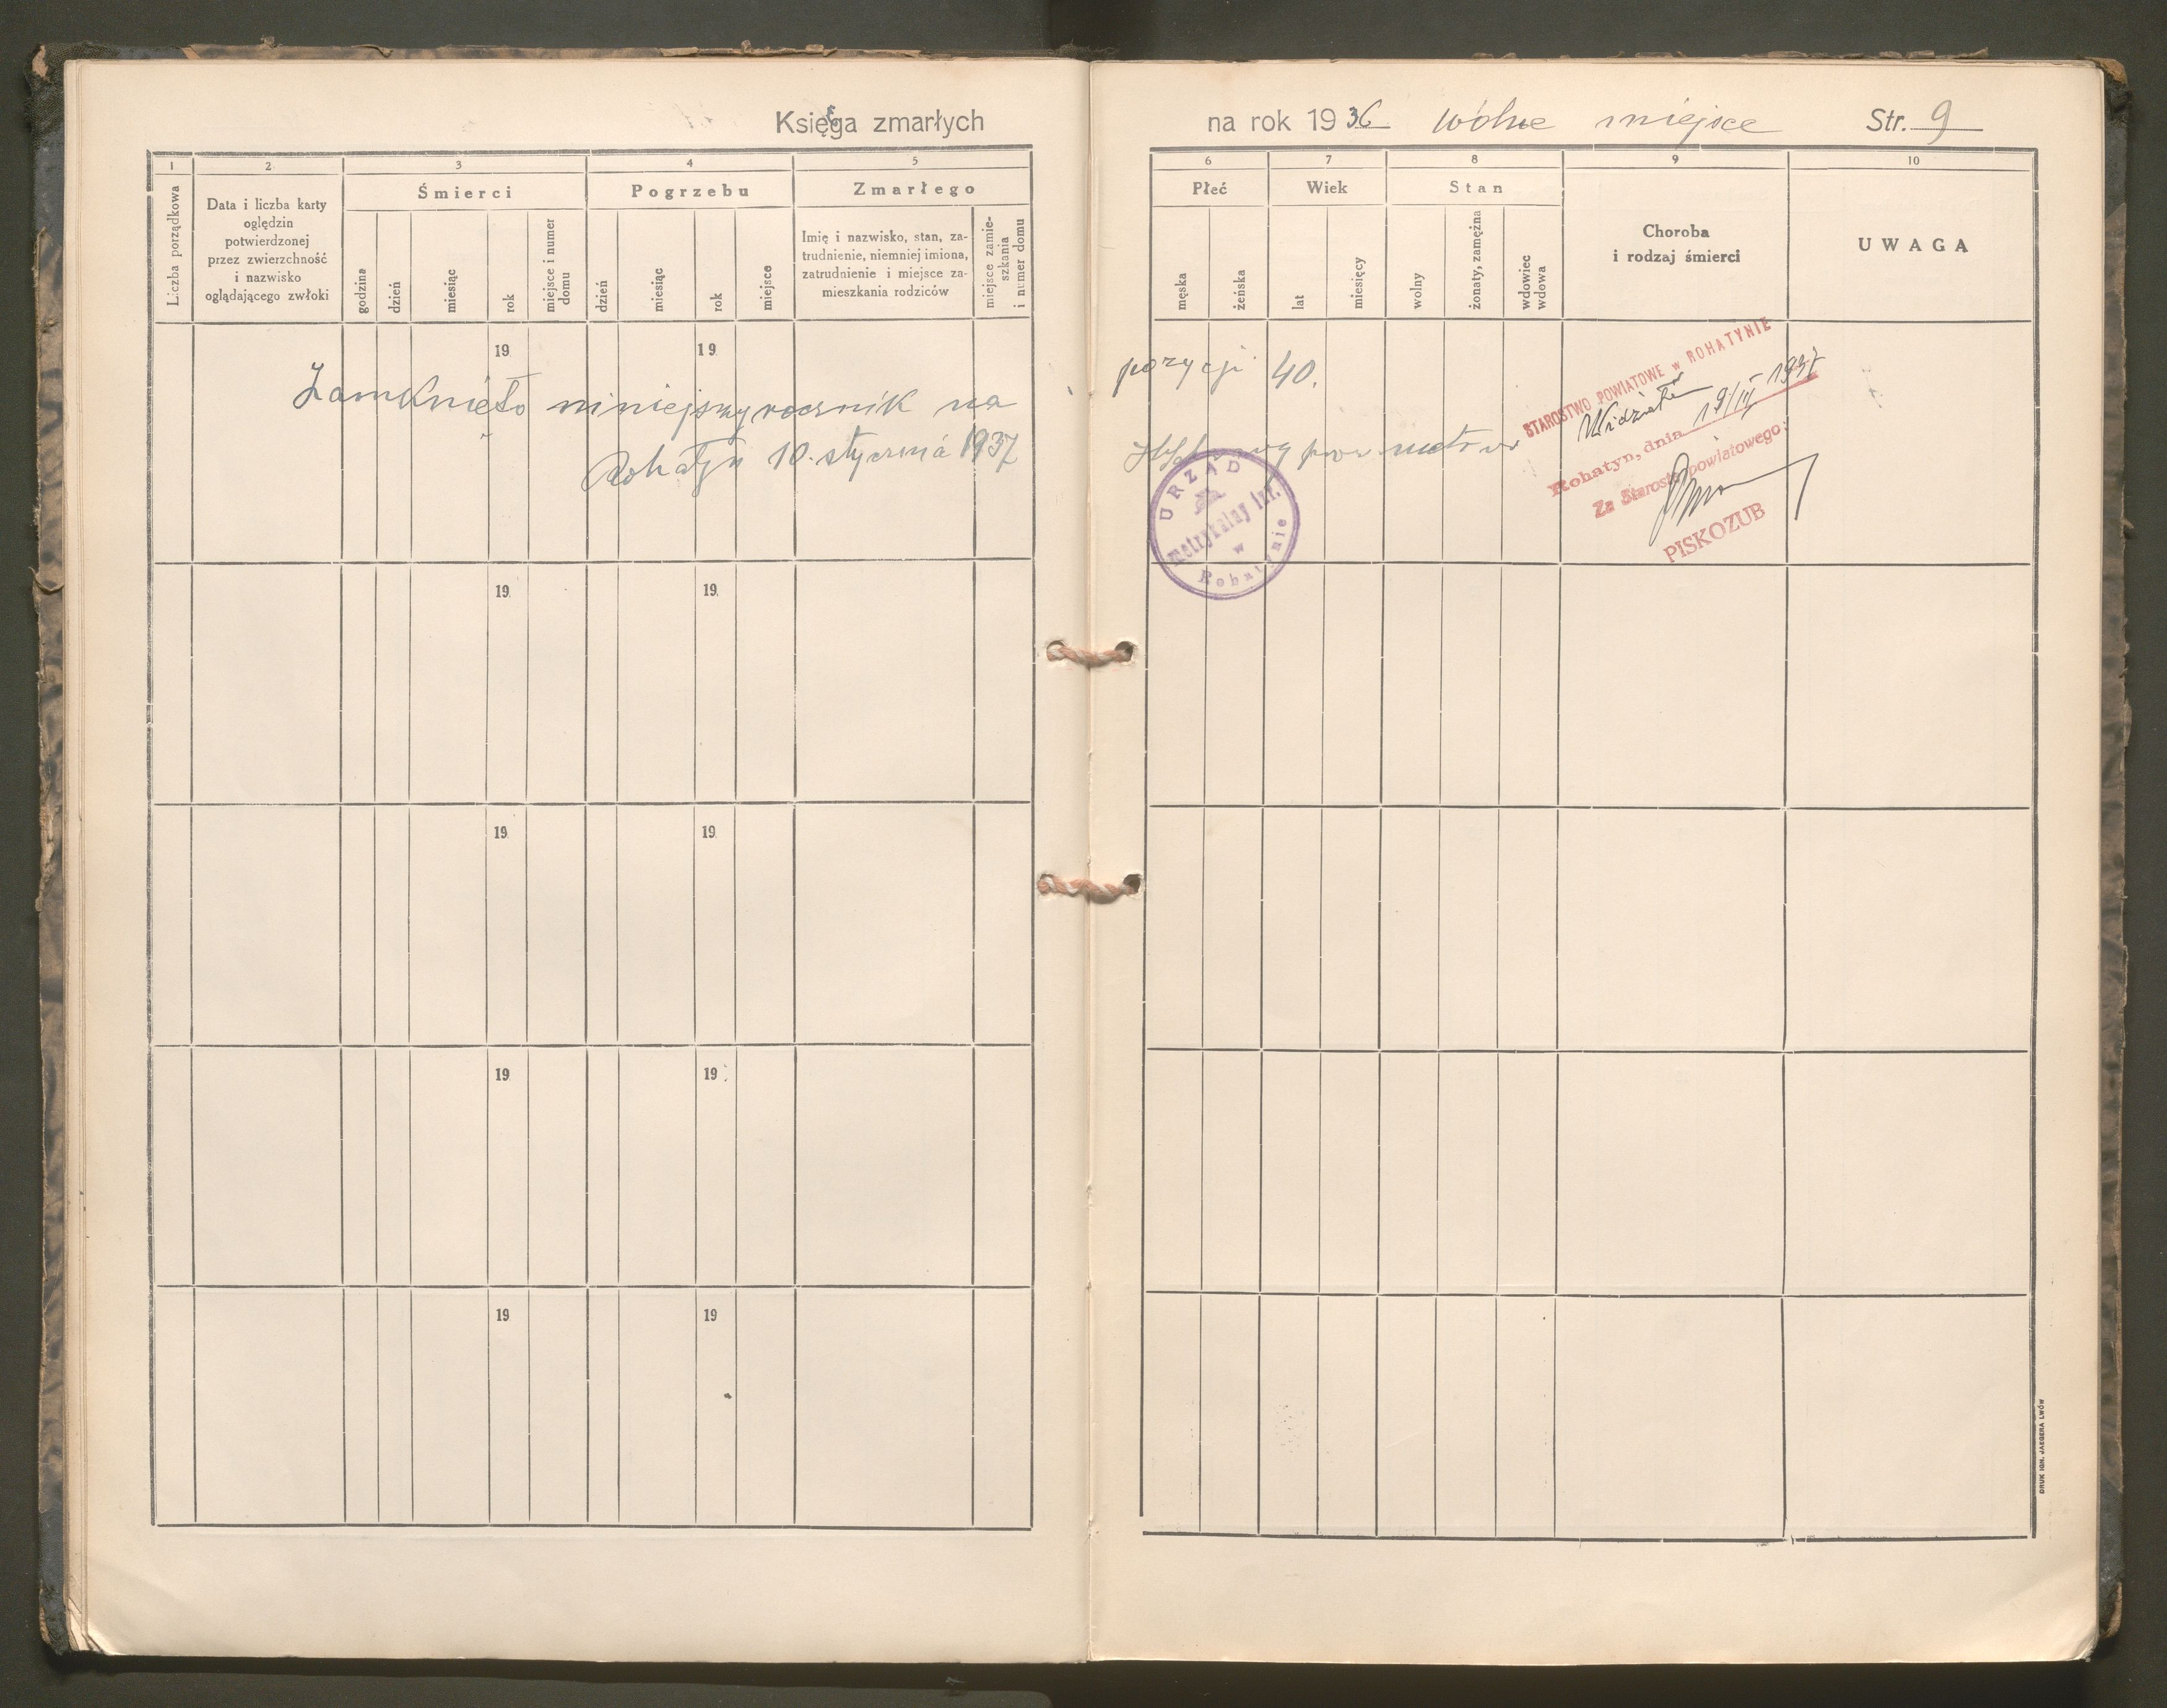 Księga zmarłych na rok 1936 wolne miejsce Str. 9
1 2 3 4 5 6 7 8 9 10
Liczba porządkowa
Data i liczba karty
oględzin
potwierdzonej
przez zwierzchność
i nazwisko
oglądającego zwłoki
Śmierci
godzina
dzień
miesiąc
rok
miejsce i numer
domu
Pogrzebu
dzień
miesiąc
rok
miejsce
Zmarłego
Imię i nazwisko, stan, za-
trudnienie, niemniej imiona,
zatrudnienie i miejsce za-
mieszkania rodziców
miejsce zamie-
szkania
i numer domu
Płeć
męska
żeńska
Wiek
lat
miesięcy
Stan
wolny
żonaty, zamężna
wdowiec
wdowa
Choroba
i rodzaj śmierci
UWAGA
19 19
Zamknięto niniejszy rocznik na pozycji 40.
Rohatyn 10. stycznia 1937
URZĄD
metrykalny izr.
w
Rohatynie
STAROSTWO POWIATOWE w ROHATYNIE
Widziałem
Rohatyn, dnia 19/III 1937
Za Starostę powiatowego:
PISKOZUB
19 19
19 19
19 19
19 19
DRUK IGN. JAEGERA LWÓW